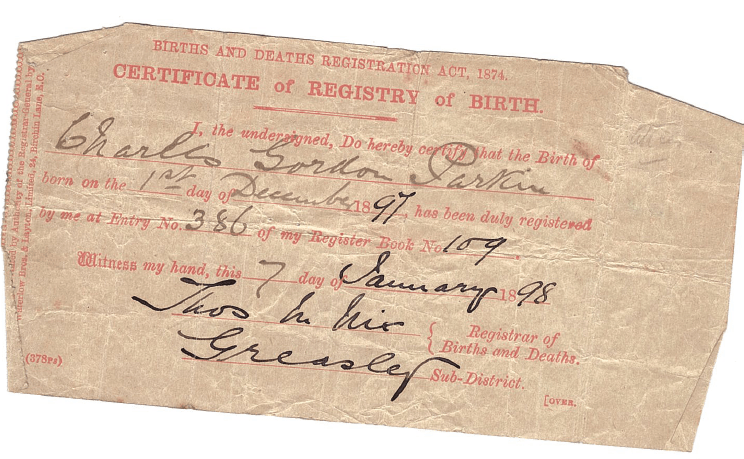 BIRTHS AND DEATHS REGISTRATION ACT, 1874.
CERTIFICATE of REGISTRY of BIRTH.
I, the undersigned, Do hereby certify that the Birth of
Charles Gordon Parkin
born on the 1st day of December 1897, has been duly registered
by me at Entry No. 386 of my Register Book No 109.
Witness my hand, this 7 day of January 1898
Thos M Nix
Registrar of
Births and Deaths.
Greasley Sub-District.
[OVER.
by Authority of the Registrar-General by
Waterlow Bros. & Layton, Limited, 24, Birchin Lane, E.C.